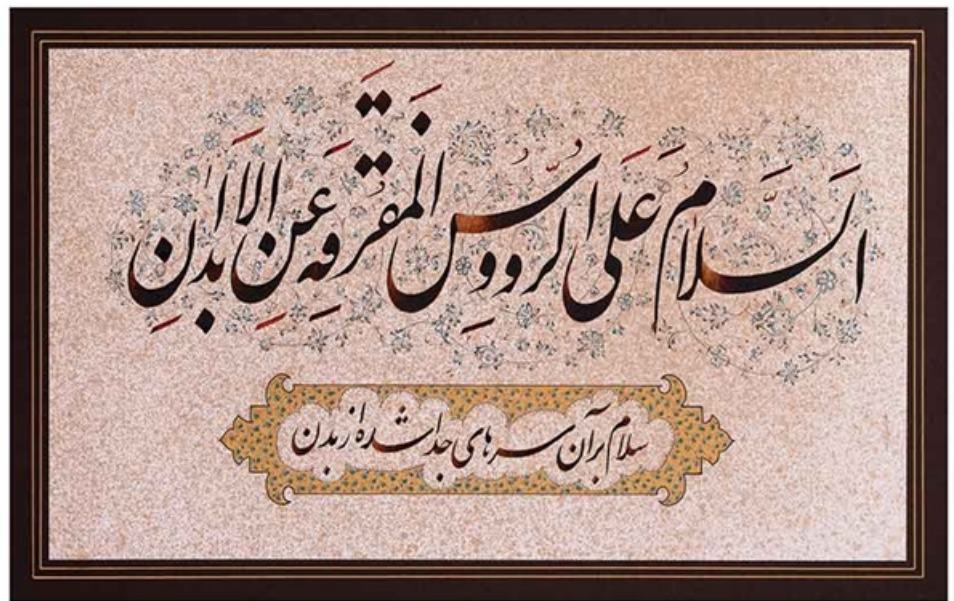 السَّلامُ عَلَی الرُّووسِ المَفَرقةِ عَنِ الاَبدانِ
سلام بر آن سرهای جدا شده از بدن